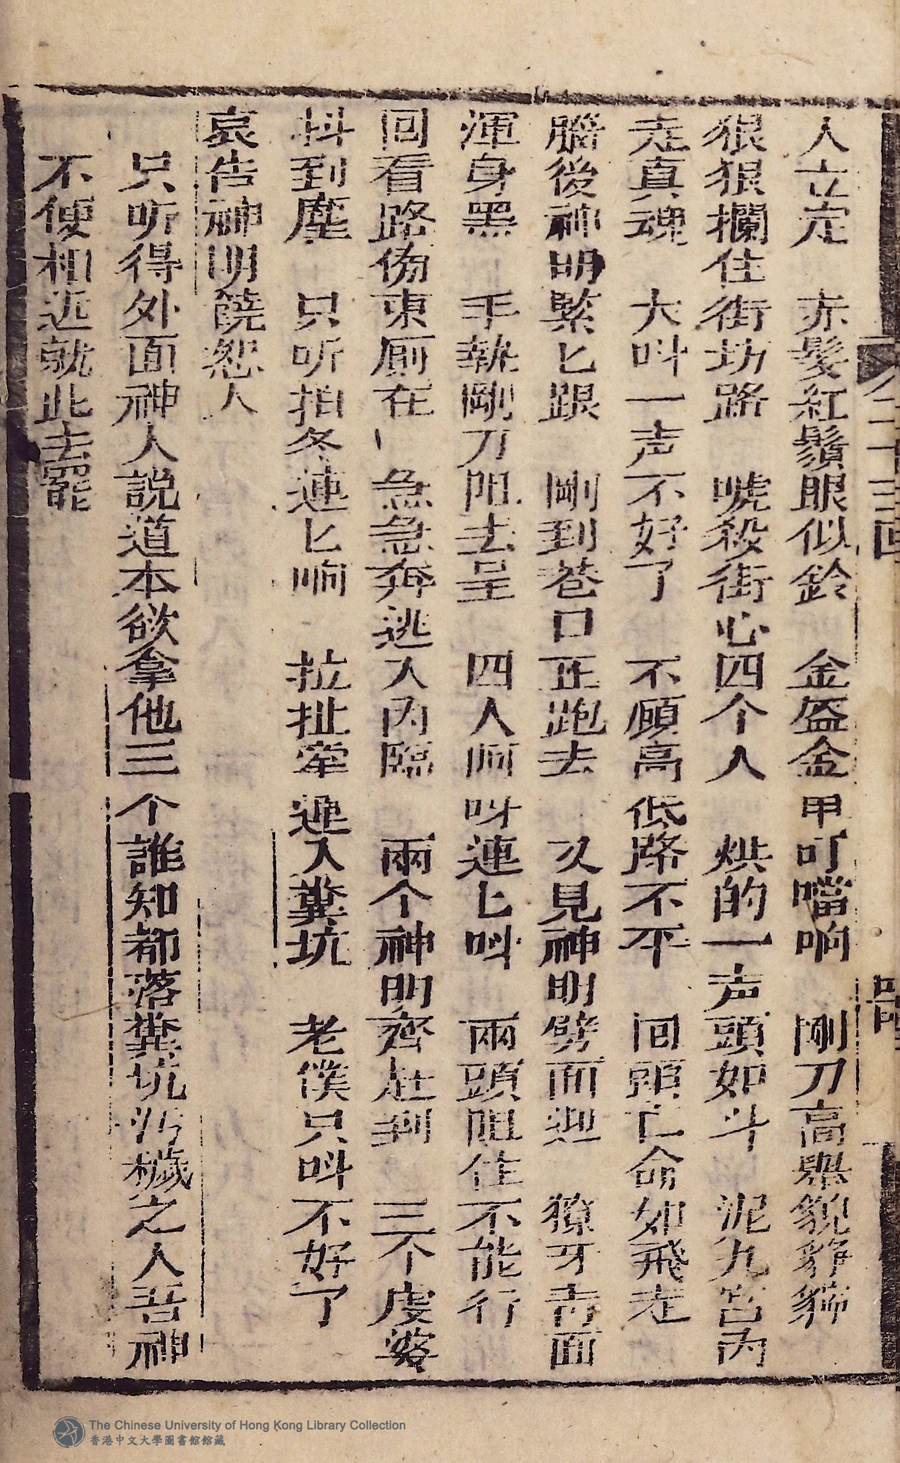 人立定　赤髮紅鬚眼似鈴　金盔金甲叮噹响　剛刀高舉貌猙獰
狠狠攔住街坊路　唬殺街心四个人　烘的一声頭如斗　泥丸宮內
走真魂　大呌一声不好了　不顧高低路不平　回頭亡命如飛走
腦後神明緊匕跟　剛到巷口正跑去　又見神明劈面迎　獠牙青面
渾身黑　手執剛刀阻去呈　四人呵呀連匕呌　兩頭阻住不能行
回看路傍東厠在　急急奔逃入內臨　兩个神明齊赶到　三个虔婆
抖到塵　只听拍冬連匕响　拉扯牽連入糞坑　老僕只呌不好了
哀告神明饒恕人
只听得外面神人說道本欲拿他三个誰知都落糞坑污穢之人吾神
不便相近就此去罷
二十三囬
The Chinese University of Hong Kong Library Collection
香港中文大學圖書館館藏